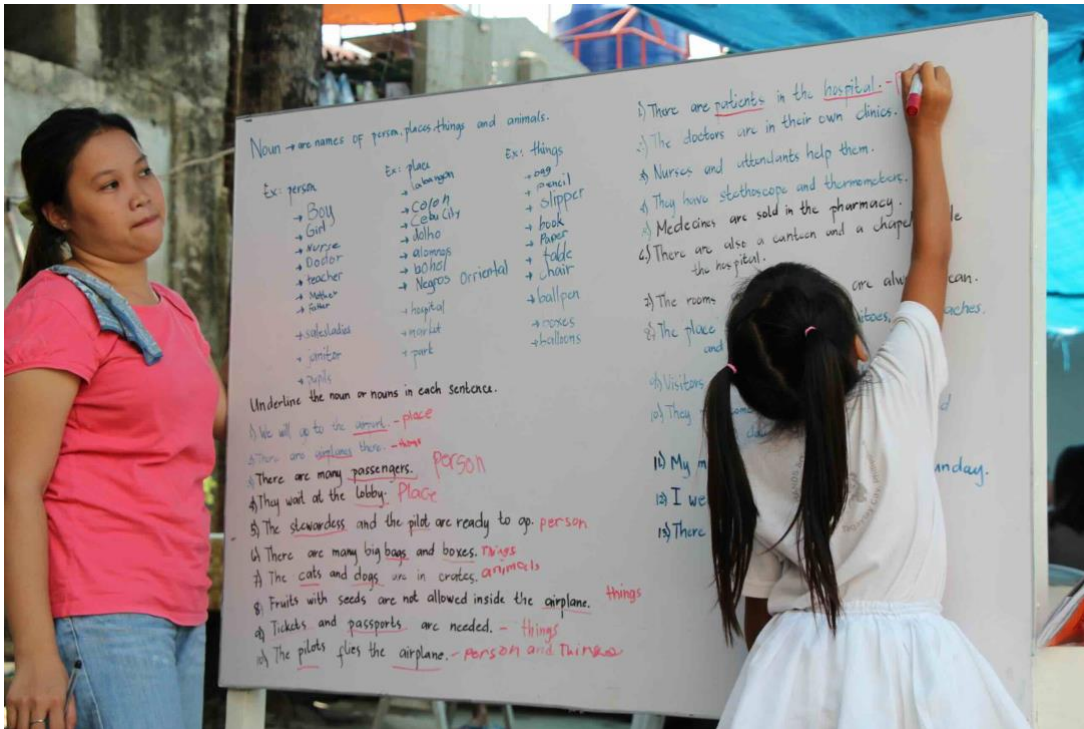 Noun → are names of person, places, things and animals.
Ex: person
→ Boy
→ Girl
→ Nurse
→ Doctor
→ teacher
→ Mother
→ Father
→ salesladies
→ janitor
→ pupils
Ex: place
→ labangon
→ Colon
→ Cebu City
→ dolho
→ alomnos
→ bohol
→ Negros Orriental
→ hospital
→ market
→ park
Ex: things
→ bag
→ pencil
→ slipper
→ book
→ Paper
→ table
→ chair
→ ballpen
→ boxes
→ balloons
Underline the noun or nouns in each sentence.
1) We will go to the - place
2) There are airplanes there. - things
3) There are many passengers. person
4) They wait at the lobby. Place
5) The stewardess and the pilot are ready to go. person
6) There are many big bags and boxes. Things
7) The cats and dogs are in crates. animals
8) Fruits with seeds are not allowed inside the airplane. things
9) Tickets and passports are needed. - things
10) The pilots flies the airplane. - person and Things
1) There are patients in the hospital. -
2) The doctors are in their own clinics.
3) Nurses and attendants help them.
4) They have stethoscope and thermometers.
5) Medecines are sold in the pharmacy.
6) There are also a canteen and a chapel
the hospital.
7) The rooms are
8) The place
and
9) Visitors
10) They
11) My
12) I
13) There